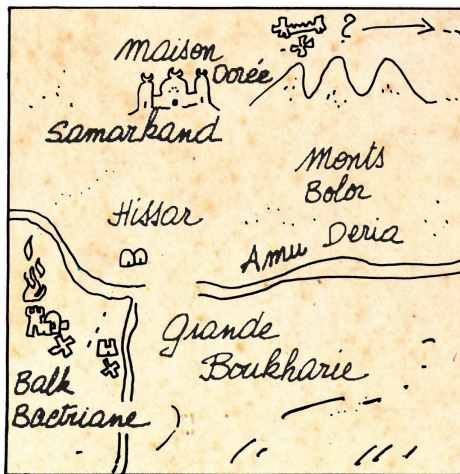 ?
Maison
Dorée
Samarkand
Monts
Bolor
Hissar
Amu Deria
Grande
Boukharie
Balk
Bactriane